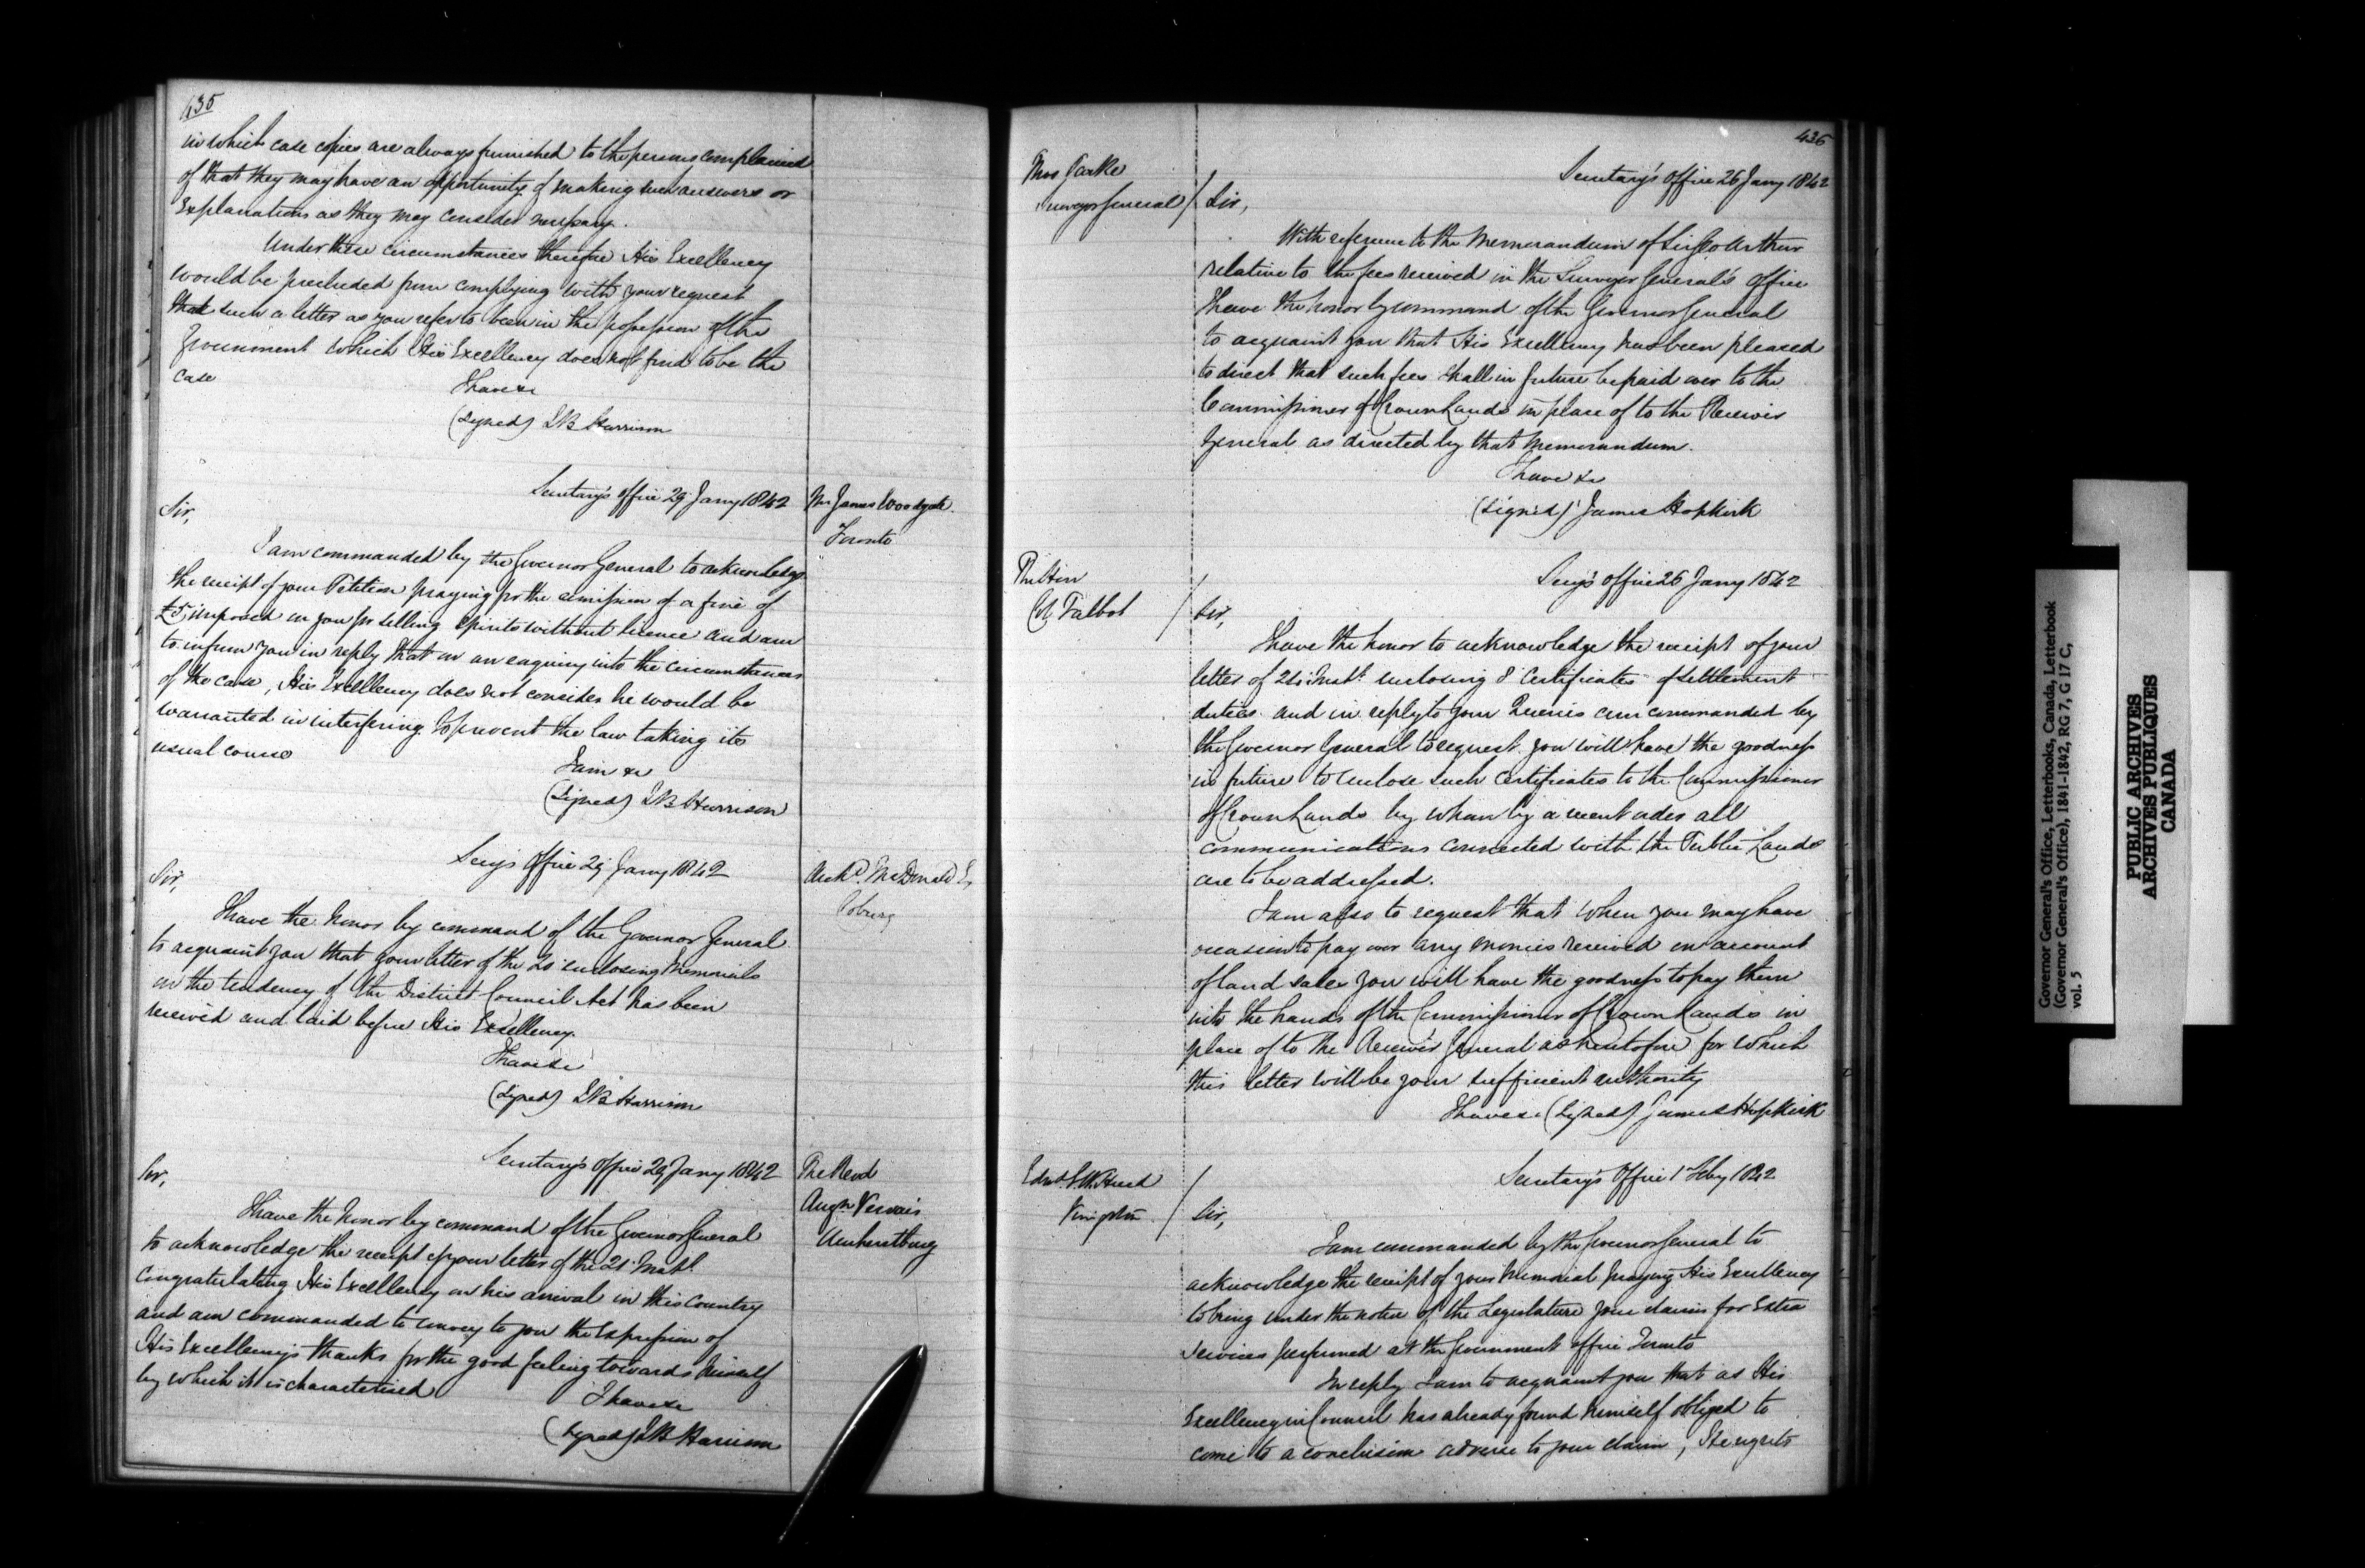 435
in which case copies are always furnished to the persons complained
of that they may have an opportunity of making such answers or
Explanations as they may consider necessary.
Under these circumstances therefore His Excellency
would be precluded from complying with your request
that such a letter as you refer to been in the possession of the
Government which His Excellency does not find to be the
case
I have &c
(Signed) S B Harrison
Secretary's Office 29 Jany 1842
Mr James Woodgate
Toronto
Sir,
I am commanded by the Governor General to acknowledge
the receipt of your Petition praying for the remission of a fine of
£5, imposed on you for selling spirits without licence and am
to inform you in reply that on an enquiry into the circumstances
of the case, His Excellency does not consider he would be
warranted in interfering to prevent the law taking its
usual course
I am &c
(Signed) S B Harrison
Secy's Office 29 Jany 1842
Archd. McDonald
Coburg
Sir,
I have the honor by command of the Governor General
to acquaint you that your letter of the enclosing Memorials
on the tendency of the District Council Act has been
received and laid before His Excellency.
I have &c
(Signed) S B Harrison
Secretary's Office 29 Jany 1842
The Revd
Augn. Vervais
Amherstburg
Sir,
I have the honor by command of the Governor General
to acknowledge the receipt of your letter of the 21 Inst.
Congratulating His Excellency on his arrival in this Country
and am commanded to convey to you the Expression of
His Excellency's thanks for the good feeling towards himself
by which it is characterised
I have &c
(Signed) S B Harrison
436
Secretary's Office 26 Jany 1842
Thos Parke
Surveyor General
Sir,
With reference to the Memorandum of Sir Geo Arthur
relative to the fees received in the Surveyor General's Office
I have the honor by command of the Governor General
to acquaint you that His Excellency has been pleased
to direct that such fees shall in future be paid over to the
Commissioner of Crown Lands in place of to the Receiver
General as directed by that Memorandum.
I have &c
(Signed) James Hopkirk
Secy's Office 26 Jany 1842
The Hon
Col Talbot
Sir,
I have the honor to acknowledge the receipt of your
letter of Inst. enclosing 8 Certificates of settlement
duties and in reply to your Queries am commanded by
the Governor General to request you will have the goodness
in future to enclose such Certificates to the Commissioner
of Crown Lands by whom by a recent order all
communications connected with the Public Lands
are to be addressed.
I am also to request that when you may have
occasion to pay over any monies received on account
of land sales you will have the goodness to pay them
into the hands of the Commissioner of Crown Lands in
place of to the Receiver General as heretofore for which
this letter will be your sufficient authority
I have &c (Signed) James Hopkirk
Secretary's Office 1 Feby 1842
Kingston
Sir,
I am commanded by the Governor General to
acknowledge the receipt of your Memorial praying His Excellency
to bring under the notice of the Legislature your claims for Extra
Services performed at the Government Office Toronto
In reply I am to acquaint you that as His
Excellency in Council has already found himself obliged to
come to a conclusion adverse to your claim, He regrets
Governor General's Office, Letterbooks, Canada, Letterbook
(Governor General's Office), 1841-1842, RG 7, G 17 C,
vol. 5
PUBLIC ARCHIVES
ARCHIVES PUBLIQUES
CANADA